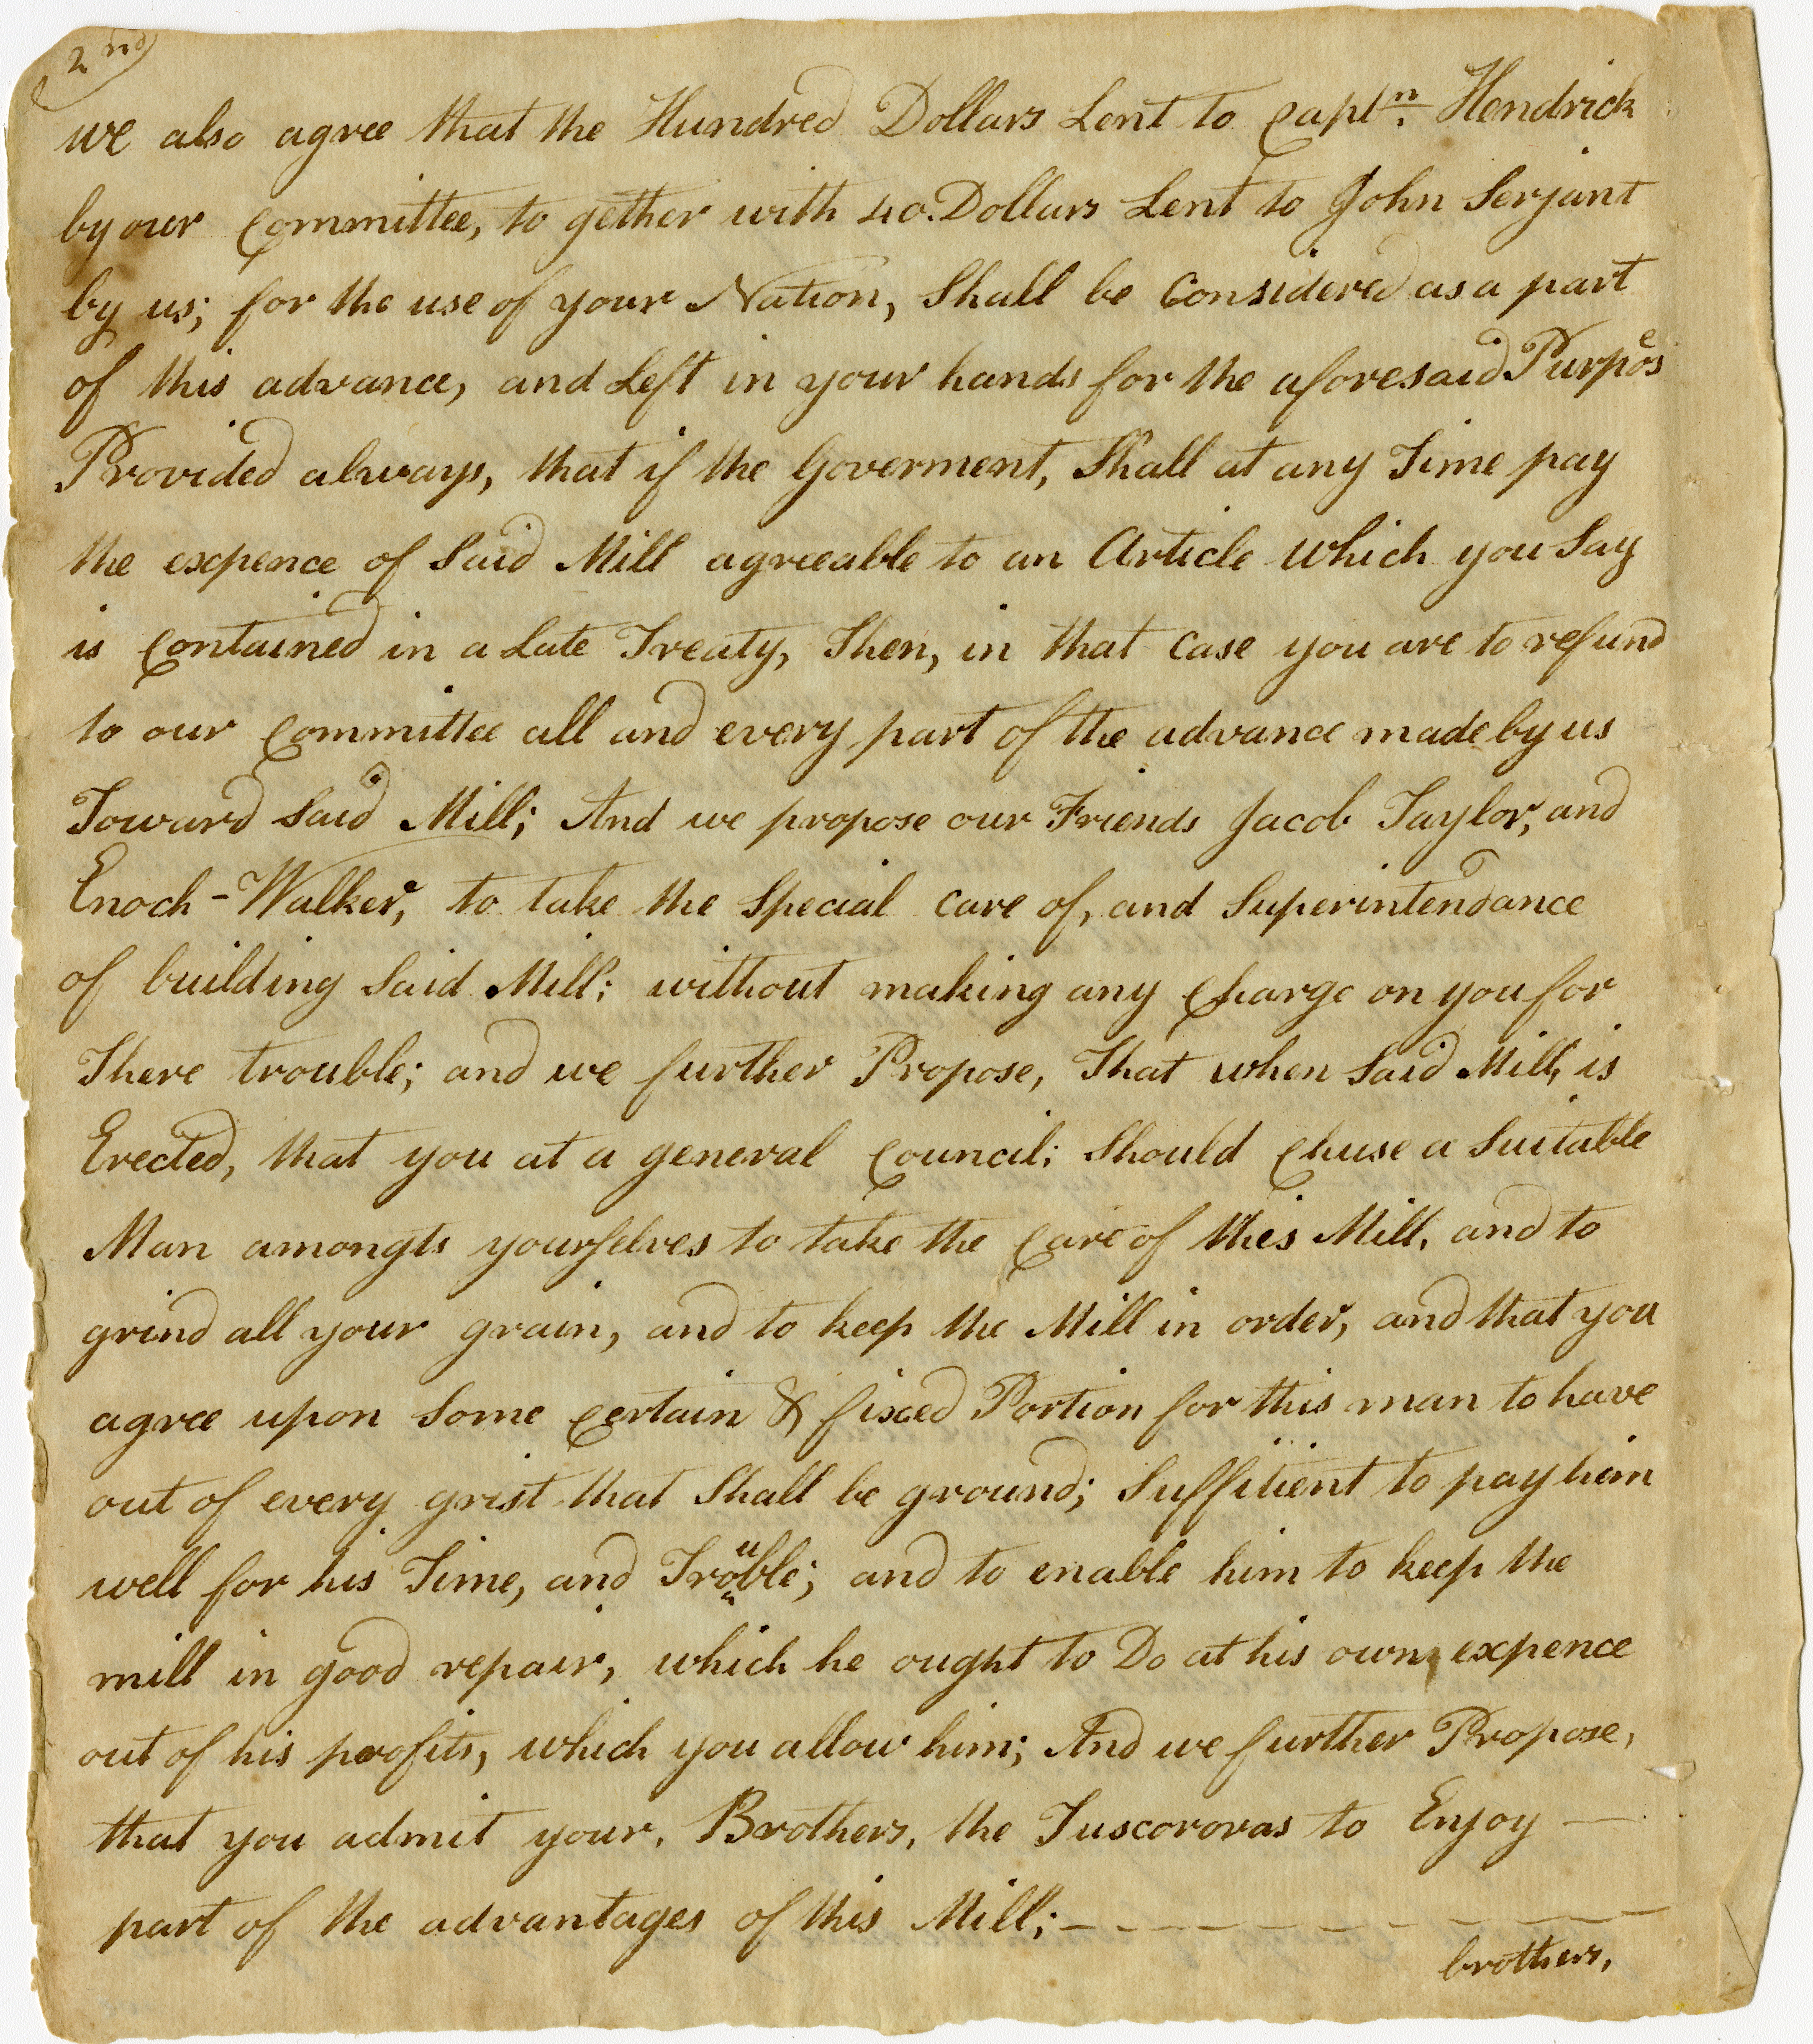 2nd
we also agree that the Hundred Dollars Lent to Captn. Hendrick
by our Committee, to gether with 40. Dollars Lent to John Serjant
by us; for the use of your Nation, Shall be Considered as a part
of this advance, and Left in your hands for the aforesaid Purpose
Provided always, that if the Goverment, Shall at any Time pay
the expence of Said Mill agreeable to an Article which you Say
is Contained in a Late Treaty, Then, in that Case you are to refund
to our Committee all and every part of the advance made by us
Toward Said Mill; And we propose our Friends Jacob Taylor, and
Enoch-Walker, to take the Special Care of, and Superintendance
of building Said Mill; without making any Charge on you for
There trouble; and we further Propose, That when Said Mill, is
Erected, that you at a general Council; Should Chuse a Suitable
Man amongts yourselves to take the Care of this Mill, and to
grind all your grain, and to keep the Mill in order, and that you
agree upon Some Certain & fixed Portion for this man to have
out of every grist that Shall be ground; Suffitient to pay him
well for his Time, and Trouble; and to enable him to keep the
mill in good repair, which he ought to Do at his own, expence
out of his profits, which you allow him; And we further Propose,
that you admit your, Brothers, the Tuscororas to Enjoy —
part of the advantages of this Mill; — — — — — — — — —
brothers,